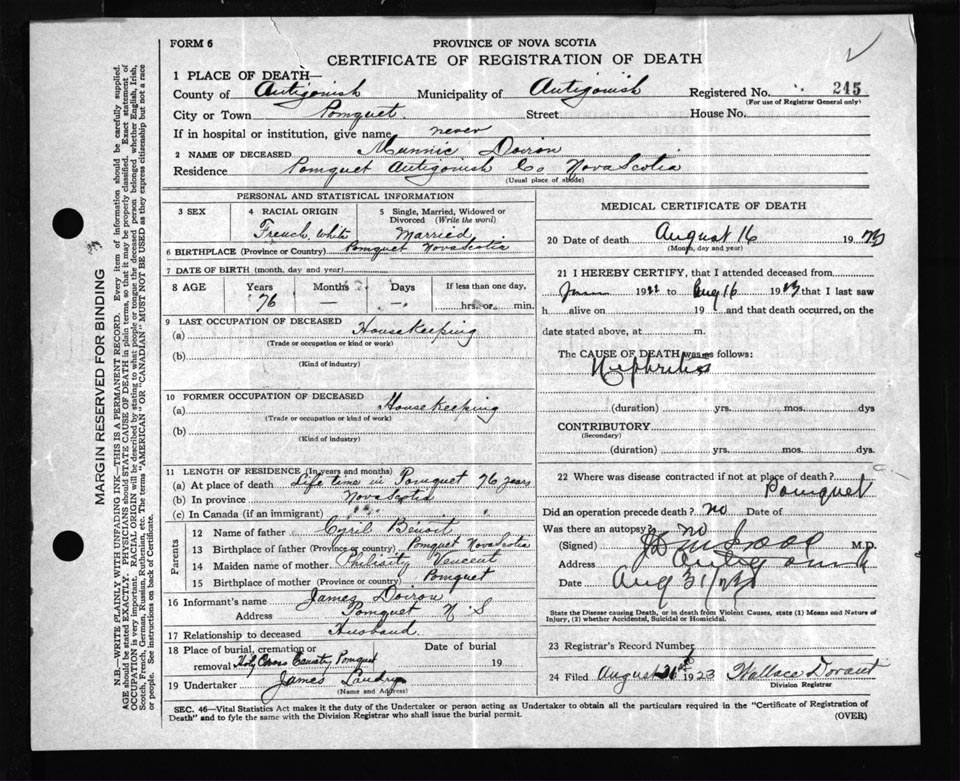 FORM 6
PROVINCE OF NOVA SCOTIA
CERTIFICATE OF REGISTRATION OF DEATH
1 PLACE OF DEATH—
County of Antigonish Municipality of Antigonish Registered No. 245
(For use of Registrar General only)
City or Town Pomquet. Street House No.
If in hospital or institution, give name never
2 NAME OF DECEASED Doiron
Residence Pomquet Antigonish Co Nova Scotia
(Usual place of abode)
PERSONAL AND STATISTICAL INFORMATION
3 SEX
4 RACIAL ORIGIN
French, white
5 Single, Married, Widowed or Divorced (Write the word)
Married
6 BIRTHPLACE (Province or Country) Pomquet Nova Scotia
7 DATE OF BIRTH (month, day and year)
8 AGE Years Months Days If less than one day,
76 — — hrs. or min.
9 LAST OCCUPATION OF DECEASED
(a) Housekeeping
(Trade or occupation or kind or work)
(b)
(Kind of industry)
10 FORMER OCCUPATION OF DECEASED
(a) Housekeeping
(Trade or occupation or kind of work)
(b)
(Kind of industry)
11 LENGTH OF RESIDENCE (In years and months)
(a) At place of death Life time in Pomquet 76 years
(b) In province Nova Scotia
(c) In Canada (if an immigrant)
Parents
12 Name of father Cyril Benoit
13 Birthplace of father (Province or country) Pomquet Nova Scotia
14 Maiden name of mother Philisity Vencent
15 Birthplace of mother (Province or country) Pomquet
16 Informant's name James Doiron
Address Pomquet N. S
17 Relationship to deceased Husband.
18 Place of burial, cremation or removal Holy Cross Pomquet
Date of burial 19
19 Undertaker James Landry
(Name and Address)
MEDICAL CERTIFICATE OF DEATH
20 Date of death August 16 19
(Month, day and year)
21 I HEREBY CERTIFY, that I attended deceased from
19 to Aug 16 1923 that I last saw
h alive on 19 and that death occurred, on the
date stated above, at m.
The CAUSE OF DEATH was as follows:
Nephritis
(duration) yrs. mos. dys
CONTRIBUTORY
(Secondary)
(duration) yrs. mos. dys.
22 Where was disease contracted if not at place of death?
Pomquet
Did an operation precede death? no Date of
Was there an autopsy? no
(Signed) M.D.
Address Antigonish
Date Aug 31/
State the Disease causing Death, or in death from Violent Causes, state (1) Means and Nature of
Injury, (2) whether Accidental, Suicidal or Homicidal.
23 Registrar's Record Number
24 Filed August 31st 1923 Wallace
Division Registrar
SEC. 46—Vital Statistics Act makes it the duty of the Undertaker or person acting as Undertaker to obtain all the particulars required in the "Certificate of Registration of
Death" and to fyle the same with the Division Registrar who shall issue the burial permit.
(OVER)
MARGIN RESERVED FOR BINDING
N.B.—WRITE PLAINLY WITH UNFADING INK—THIS IS A PERMANENT RECORD. Every item of information should be carefully supplied.
AGE should be stated EXACTLY. PHYSICIANS should STATE CAUSE OF DEATH in plain terms, so that it may be properly classified. Exact statement of
OCCUPATION is very important. RACIAL ORIGIN will be described by stating to what people or tongue the deceased person belonged whether English, Irish,
Scotch, French, German, Russian, Ruthenian, etc. The terms "AMERICAN" OR "CANADIAN" MUST NOT BE USED as they express citizenship but not a race
or people. See instructions on back of Certificate.